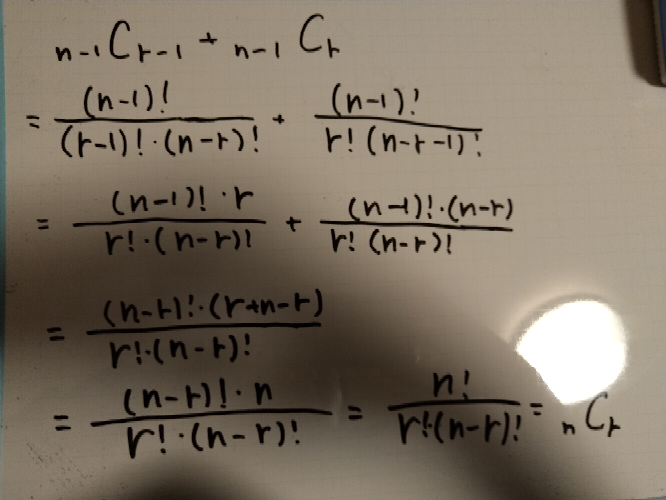 n-1Cr-1 + n-1Cr
= (n-1)! / (r-1)!·(n-r)! + (n-1)! / r!(n-r-1)!
= (n-1)!·r / r!·(n-r)! + (n-1)!·(n-r) / r!(n-r)!
= (n-r)!·(r+n-r) / r!·(n-r)!
= (n-r)!·n / r!·(n-r)! = n! / r!·(n-r)! = nCr